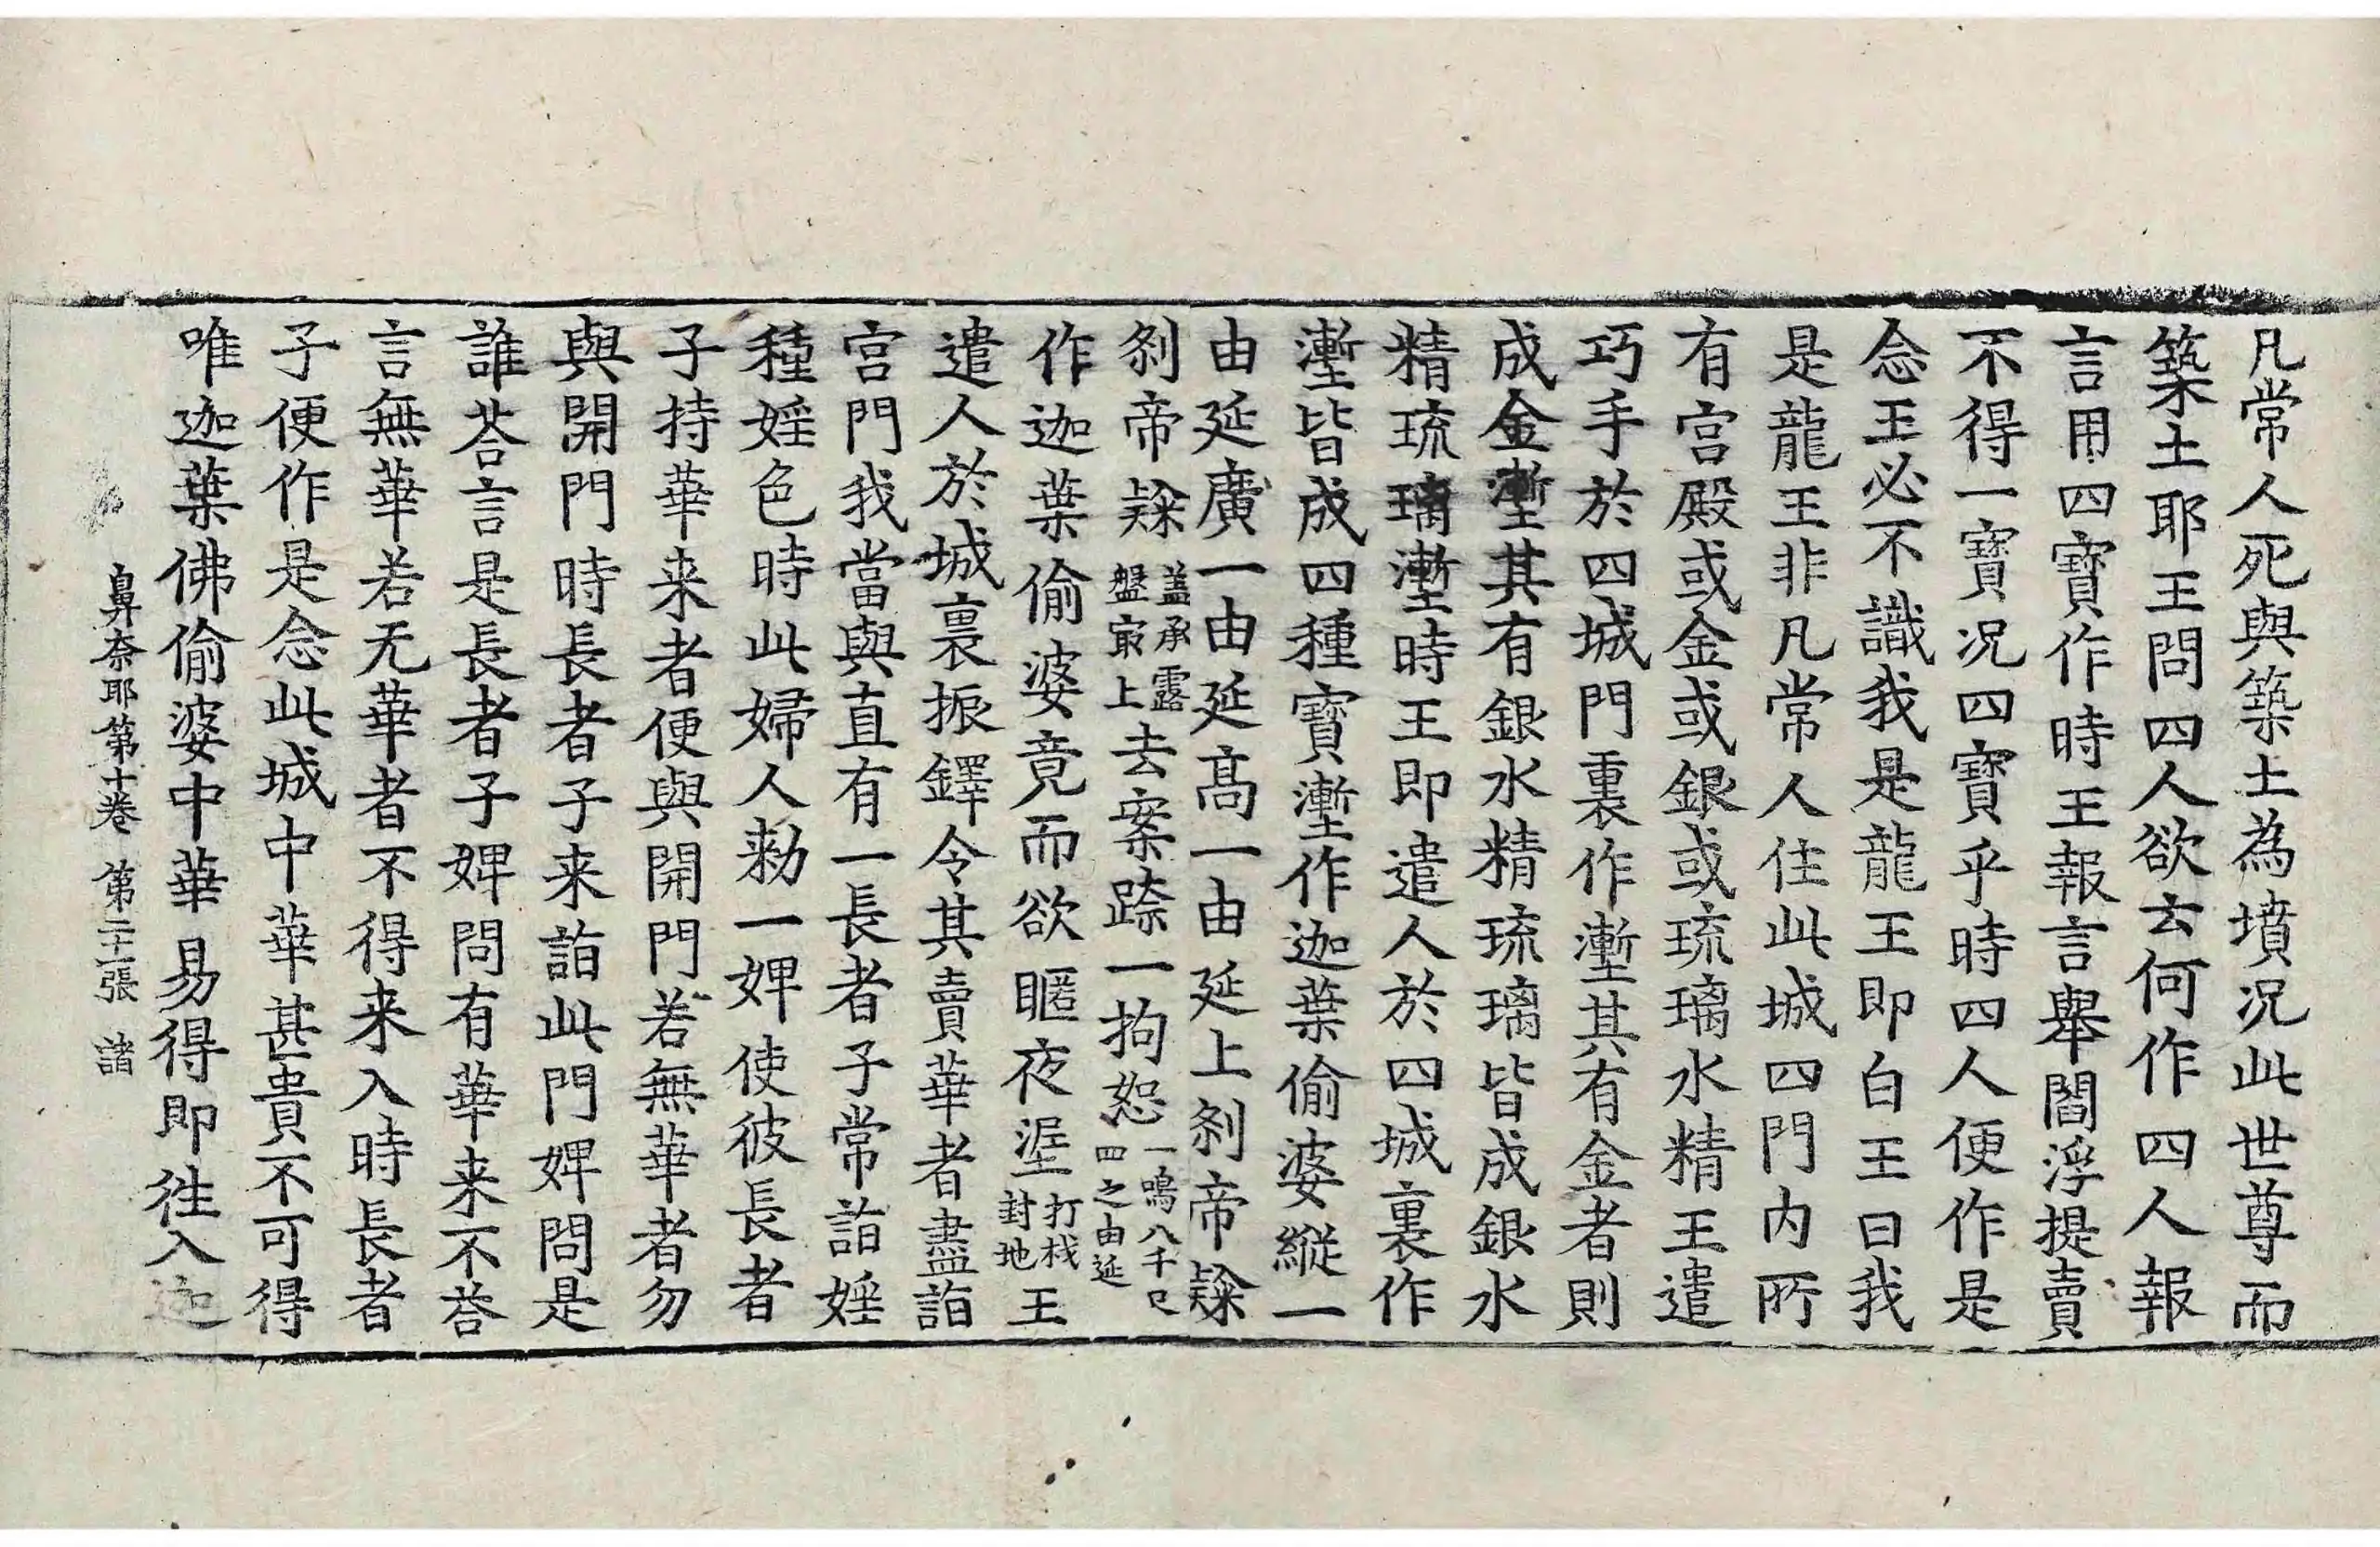 凡常人死與築土為墳况此世尊而
築土耶王問四人欲云何作四人報
言用四寶作時王報言舉閻浮提賣
不得一寶况四寶乎時四人便作是
念王必不識我是龍王即白王曰我
是龍王非凡常人住此城四門内所
有宫殿或金或銀或琉璃水精王遣
巧手於四城門裏作墼其有金者則
成金墼其有銀水精琉璃皆成銀水
精琉璃墼時王即遣人於四城裏作
墼皆成四種寶墼作迦葉偷婆縱一
由延廣一由延高一由延上刹帝㯲
刹帝㯲盖承露盤㝡上去案跡一拘恕一鳴八千已四之由延
作迦葉偷婆竟而欲暱夜涅打栈封地王
遣人於城裏振鐸令其賣華者盡詣
宫門我當與直有一長者子常詣婬
種婬色時此婦人勑一婢使彼長者
子持華来者便與開門若無華者勿
與開門時長者子来詣此門婢問是
誰荅言是長者子婢問有華来不荅
言無華若无華者不得来入時長者
子便作是念此城中華甚貴不可得
唯迦葉佛偷婆中華易得即徃入迦
鼻奈耶第十卷 第二十一張 諸